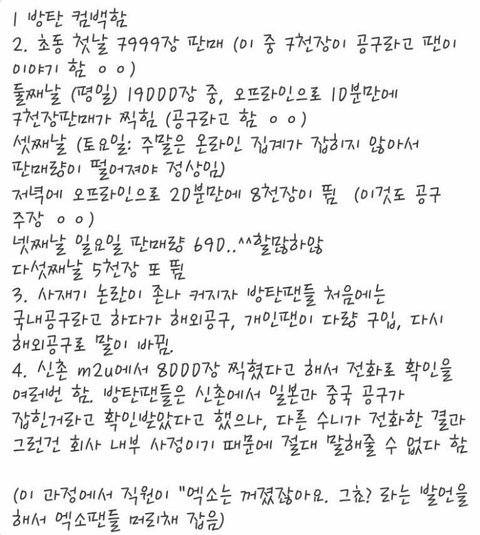 1 방탄 컴백함
2. 초동 첫날 7999장 판매 (이 중 7천장이 공구라고 팬이
이야기 함 ㅇㅇ)
둘째날 (평일) 19000장 중, 오프라인으로 10분만에
7천장판매가 찍힘 (공구라고 함 ㅇㅇ)
셋째날 (토요일: 주말은 온라인 집계가 잡히지 않아서
판매량이 떨어져야 정상임)
저녁에 오프라인으로 20분만에 8천장이 뜀 (이것도 공구
주장 ㅇㅇ)
넷째날 일요일 판매량 690..^^할많하않
다섯째날 5천장 또 뜀
3. 사재기 논란이 존나 커지자 방탄팬들 처음에는
국내공구라고 하다가 해외공구, 개인팬이 다량 구입, 다시
해외공구로 말이 바뀜.
4. 신촌 m2u에서 8000장 찍혔다고 해서 전화로 확인을
여러번 함. 방탄팬들은 신촌에서 일본과 중국 공구가
잡힌거라고 확인받았다고 했으나, 다른 수니가 전화한 결과
그런건 회사 내부 사정이기 때문에 절대 말해줄 수 없다 함
(이 과정에서 직원이 "엑소는 꺼졌잖아요. 그쵸? 라는 발언을
해서 엑소팬들 머리채 잡음)